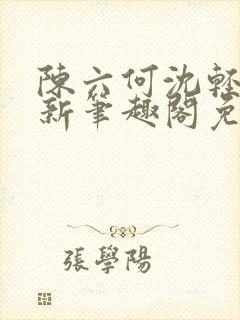 陳六何沈輕
新筆趣閣免
張學陽